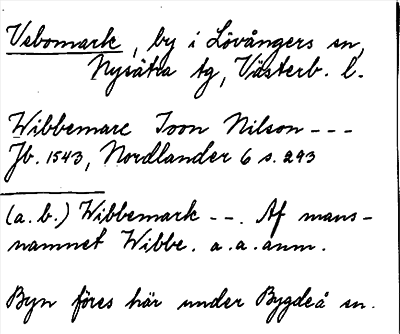 Vebomark, by i Lövångers sn,
Nysätra tg, Västerb. l.
Wibbemarc Joon Nilson ---
Jb. 1543, Nordlander 6 s. 293
(a. b.) Wibbemark --. Af mans-
namnet Wibbe. a. a. anm.
Byn föres här under Bygdeå sn.